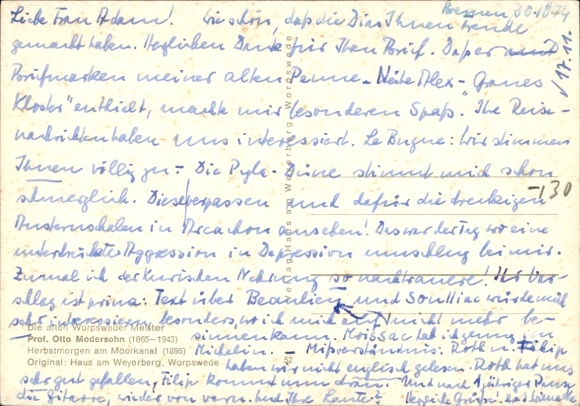 Bremen 30.10.74
Liebe Frau Adam! Wie schön, daß die Dias Ihnen Freude
gemacht haben. Herzlichen Dank für Ihren Brief. Daß er
Briefmarken meiner alten Penne - "Graues
Kloster" enthielt, machte mir besonderen Spaß. Ihre Reise-
nachrichten haben uns interessiert. La Bugue: wir stimmen
Ihnen völlig zu - Die Pyla-Düne stimmt mich schon
schmerzlich. Diese verpassen und dafür die dreckigen
Austernschalen in Arcachon ansehen! Das war der Tag wo eine
unterdrückte Aggression in Depression umschlug bei mir.
Zumal ich der Kurischen Nehrung so nachtrauere! Ihr Vor-
schlag ist prima: Text über Beaulieu und Souillac würde mich
sehr interessieren, besonders, wo ich mich auf nicht mehr be-
sinnen kann. Moissac hab ich genug im
Michelin. - Mißverständnis: Roth u. Filip
haben wir nicht englisch gelesen. Roth hat uns
sehr gut gefallen, Filip kommt nun dran. Und nach jähriger Pause
die Gitarre, wieder von vorn. Und Ihre Laute?
Herzliche Grüße
✓ 17.11.
-130
Die alten Worpsweder Meister
Prof. Otto Modersohn (1865–1943)
Herbstmorgen am Moorkanal (1895)
Original: Haus am Weyerberg, Worpswede
Verlag Haus am Weyerberg, Worpswede
52